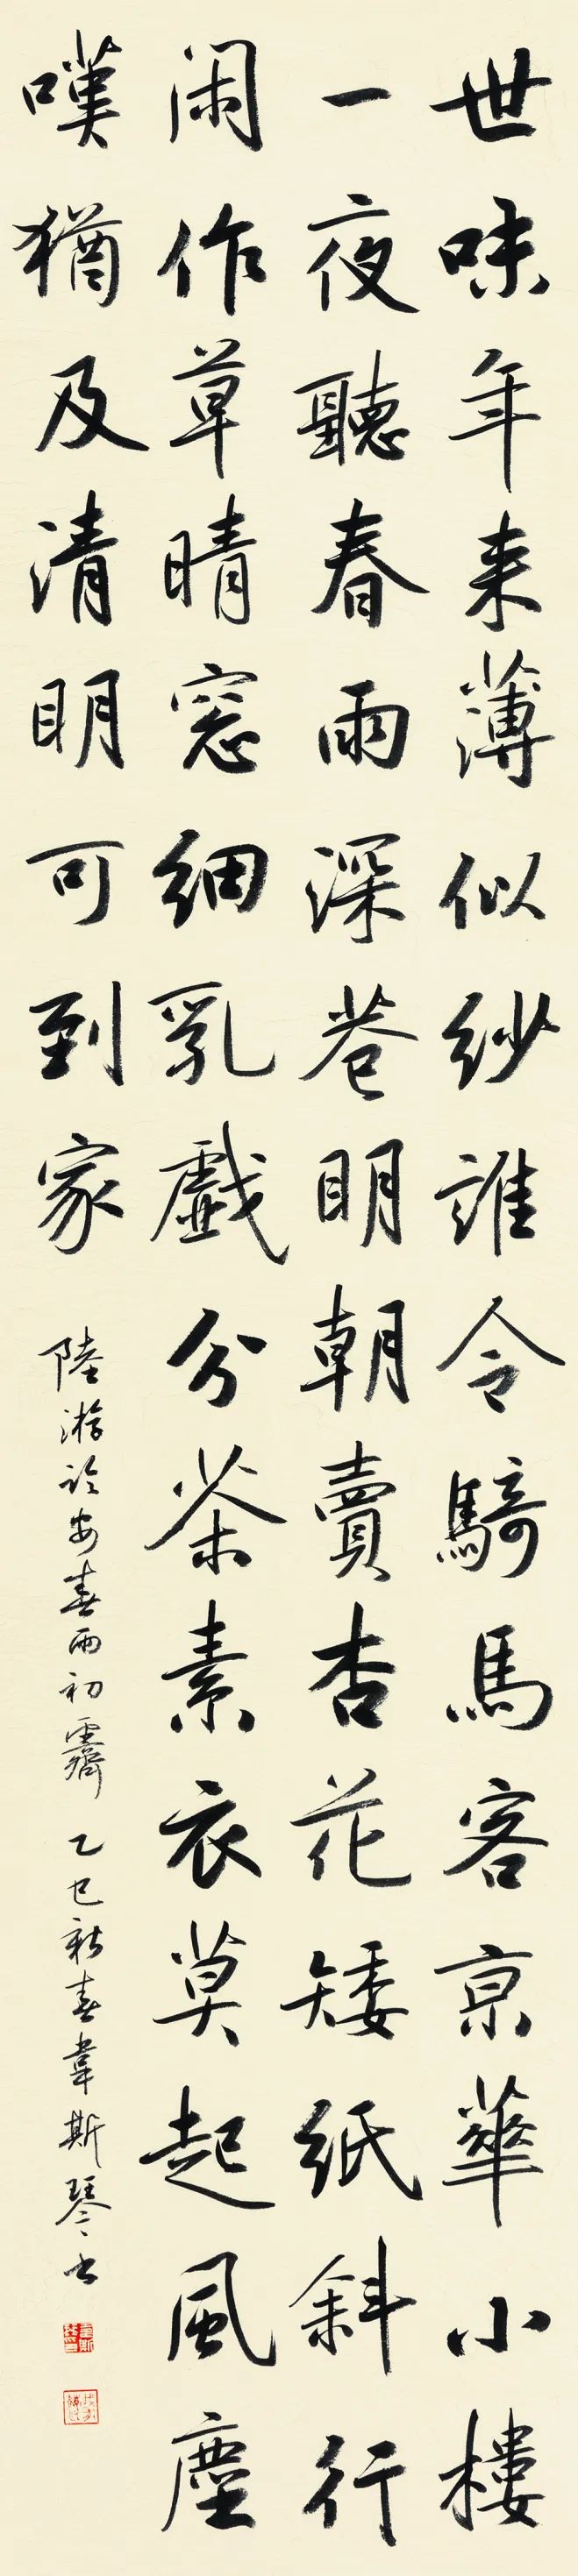 世味年来薄似紗誰令騎馬客京華小樓
一夜聽春雨深巷明朝賣杏花矮紙斜行
閑作草晴窓細乳戲分茶素衣莫起風塵
嘆猶及清明可到家
陸游臨安春雨初霽 乙巳新春韋斯琴書